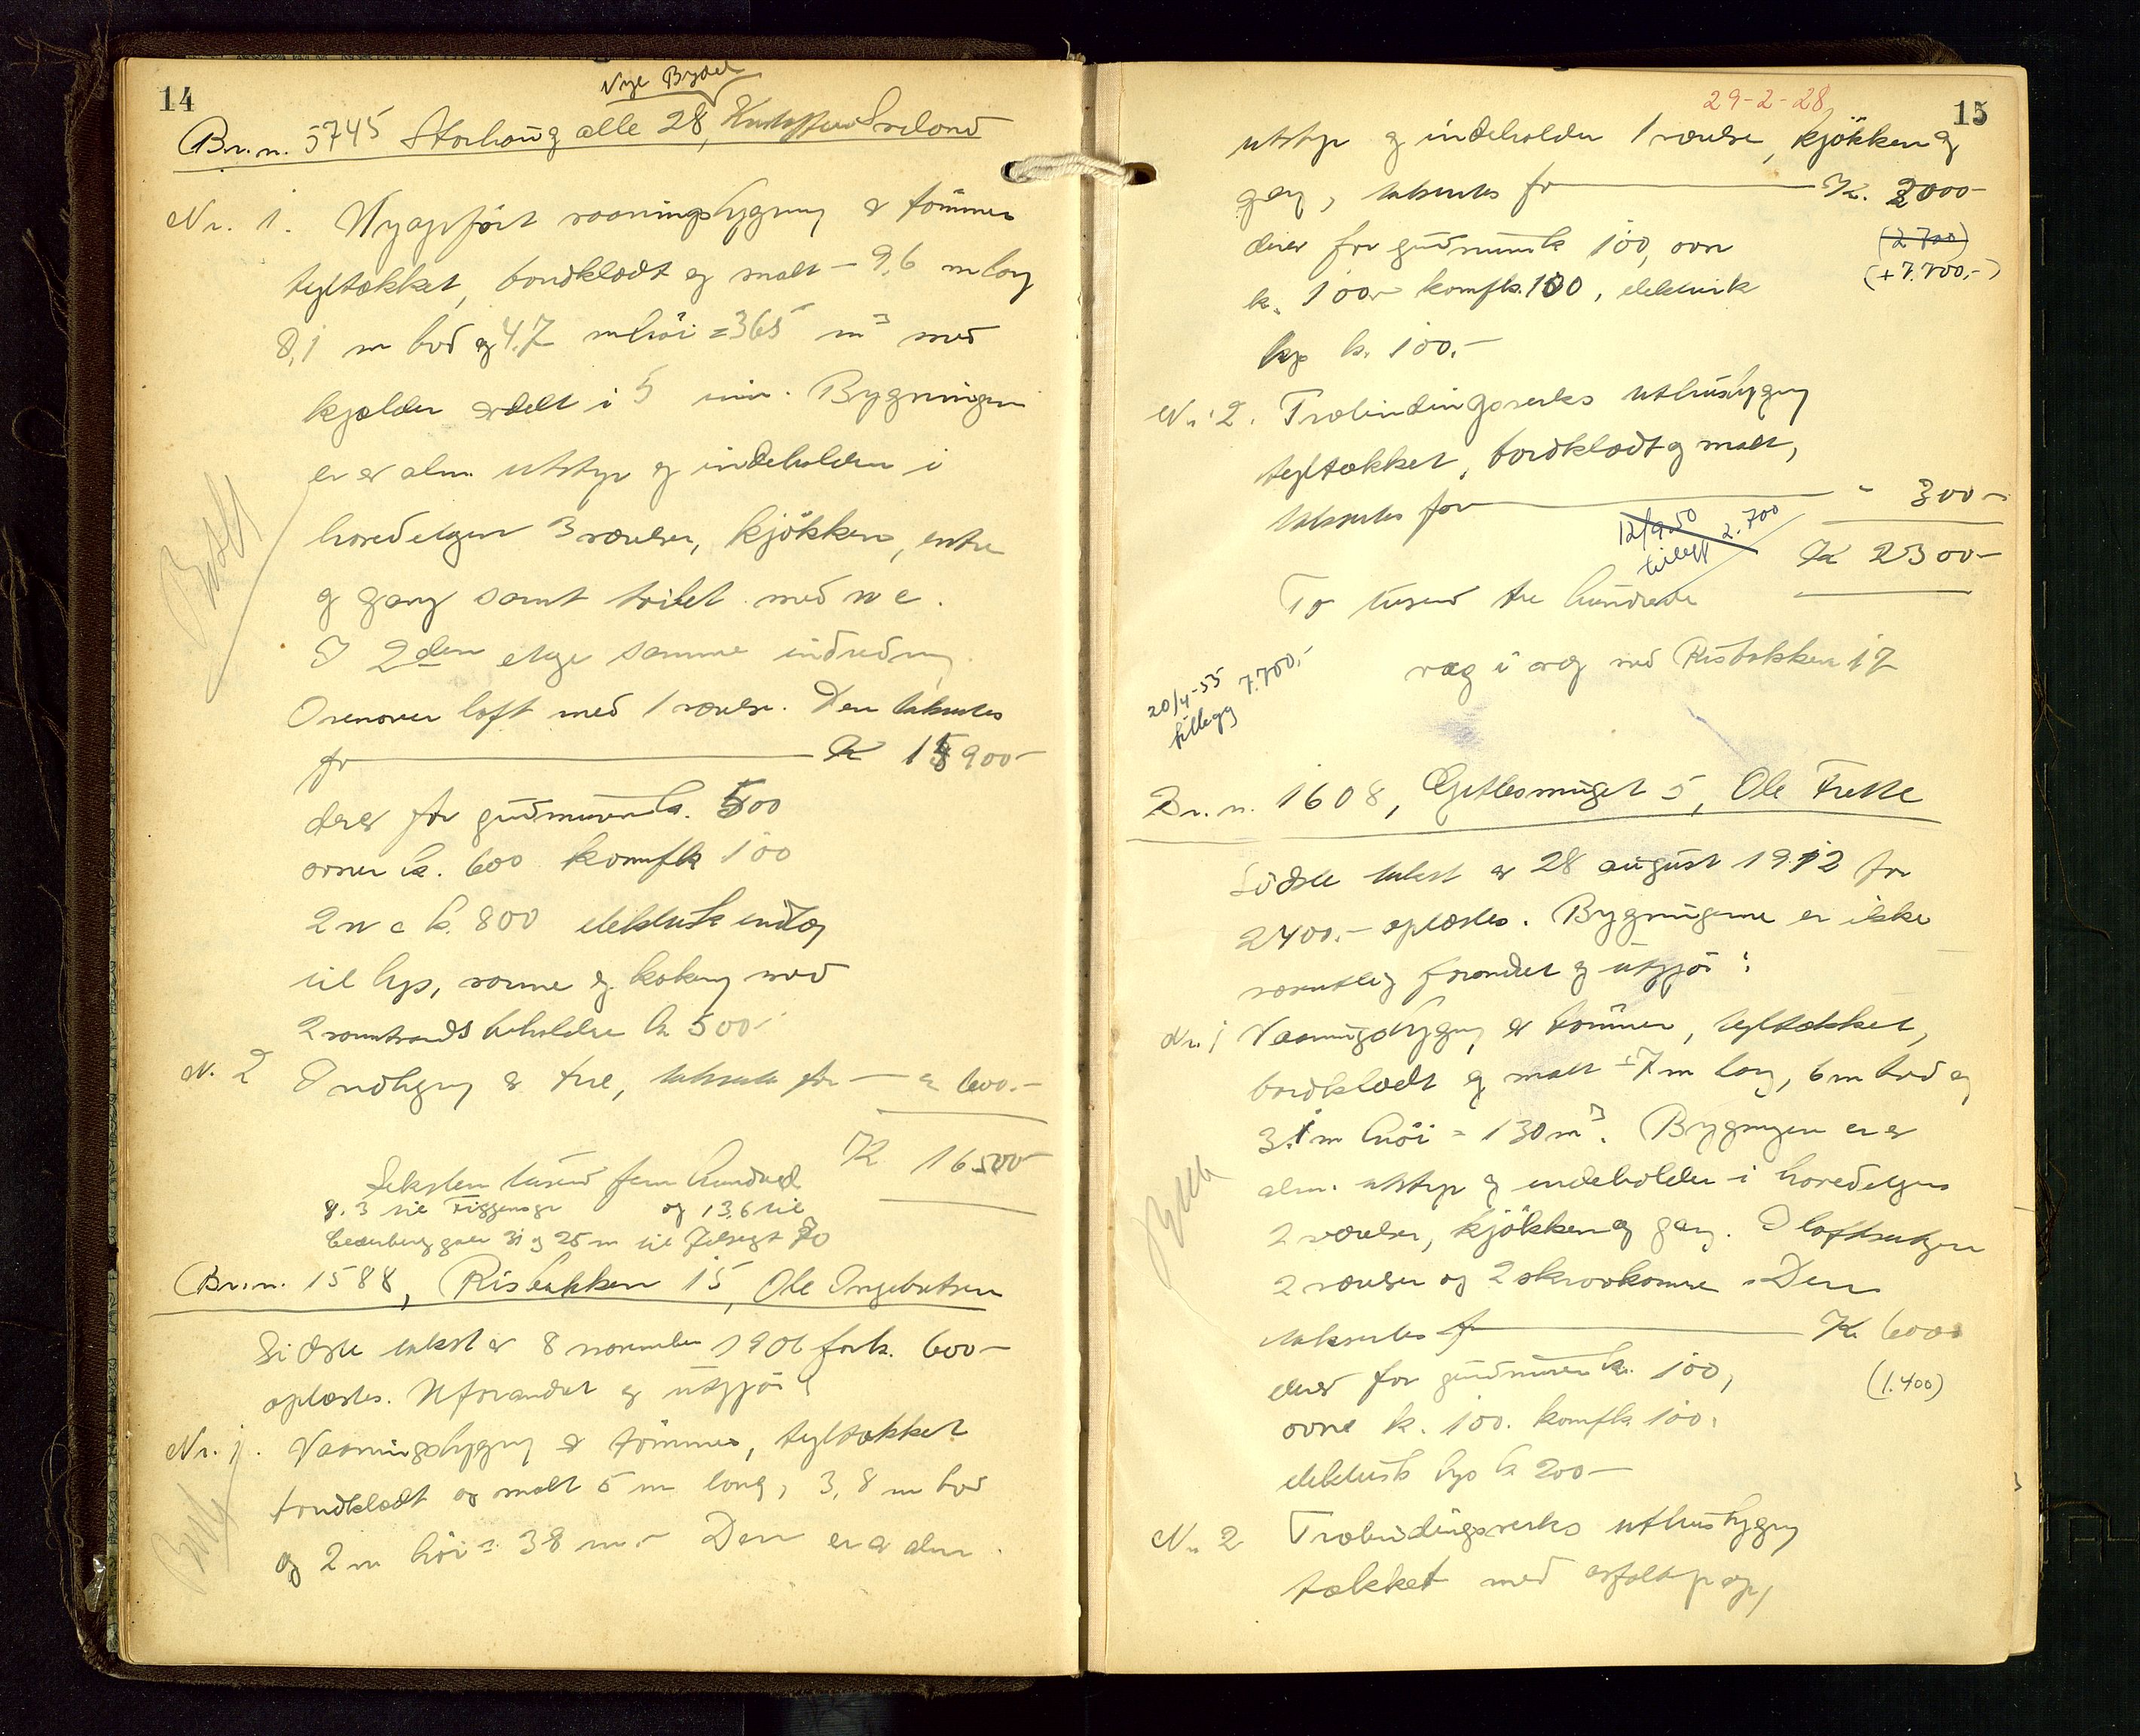 14
Nye Bydel
Br.n. 5745 Storhaug alle 28, Sreland
Nr. 1. Nyopført vaaningsbygning af tømmer
tegltækket, bordklædt og malt – 9,6 m lang
8,1 m bred og 4.7 m høi = 365 m³ med
kjælder avdelt i 5 rum. Bygningen
er av alm. utstyr og indeholder i
hovedetagen 3 værelser, kjøkken, entre
og gang samt toilet med w c.
I 2den etage samme indredning
Ovenover loft med 1 værelse. Den takseres
for Kr 15900-
derav for grundmuren k. 500
ovner k. 600 komfk 100
2 w c k. 800 elektrisk indlæg
til lys, varme og kokning med
2 varmtvandsbeholdere kr 500-
N. 2 Indhegning af træ, takseres for – " 600.-
Kr 16500-
Seksten tusend fem hundred
g. 3 til og 13,6 til
Cederberg gate 31 og 25 m til 70
Br.n. 1588, Risbakken 15, Ole Ingebretsen
Sidste takst av 8 november 1906 for k. 600-
oplæstes. Uforandret og utgjør:
Nr. 1. Vaaningsbygning af tømmer, tegltækket
bordklædt og malt 5 m lang, 3,8 m bred
og 2 m høi = 38 m³ – Den er av alm.
29-2-28
15
utstyr og indeholder 1 værelse, kjøkken og
gang, takseres for Kr. 2000-
derav for grundmur k 100, ovn (2700)
k. 100 komfk. 100, elektrisk (+7.700,-)
lys k. 100.-
Nr. 2. Træbindingsverks uthusbygning
tegltækket, bordklædt og malt,
takseres for " 300-
12/9 50 tillegg 2.700
Kr 2300-
To tusend tre hundrede
væg i væg med Risbakken 17
20/4-55 tillegg 7.700,-
Br.n. 1608, Gjetlesmuget 5, Ole Frette
Sidste takst av 28 august 1912 for
2400.- oplæstes. Bygningerne er ikke
væsentlig forandret og utgjør:
Nr. 1 Vaaningsbygning af tømmer, tegltækket,
bordklædt og malt = 7 m lang, 6 m bred og
3.1 m høi = 130 m³. Bygningen er av
alm. utstyr og indeholder i hovedetagen
2 værelser, kjøkken og gang. I loftsetagen
2 værelser og 2 skraakammer. Den
takseres for Kr. 6000
derav for grundmuren k. 100, (1.400)
ovne k. 100. komfk 100.
elektrisk lys k 200-
N. 2 Træbindingsverks uthusbygning
tækket med asfaltpap,